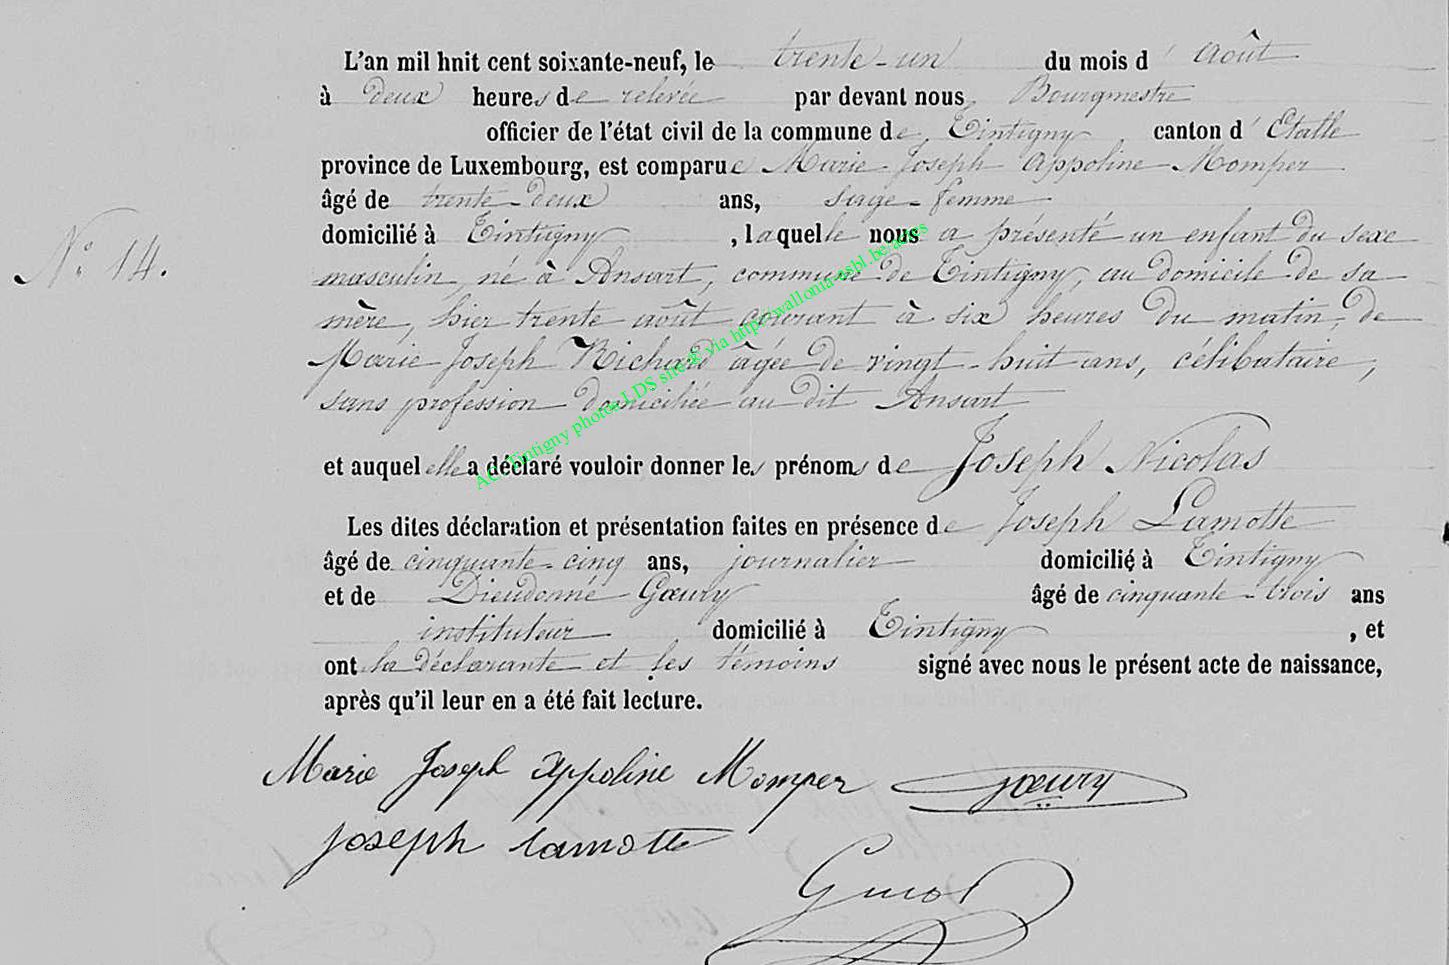 L'an mil huit cent soixante-neuf, le trente-un du mois d'août
à deux heures de relevée par devant nous, Bourgmestre
officier de l'état civil de la commune de Tintigny canton d'Etalle
province de Luxembourg, est comparue Marie Joseph Appoline Momper
âgé de trente-deux ans, sage-femme
domicilié à Tintigny, laquelle nous a présenté un enfant du sexe
N° 14.
masculin, né à Ansart, commune de Tintigny, au domicile de sa
mère, hier trente août courant à six heures du matin, de
Marie Joseph Richard âgée de vingt-huit ans, célibataire,
sans profession domiciliée au dit Ansart
et auquel elle a déclaré vouloir donner les prénoms de Joseph Nicolas
Les dites déclaration et présentation faites en présence de Joseph Lamotte
âgé de cinquante-cinq ans, journalier domicilié à Tintigny
et de Dieudonné Gœury âgé de cinquante-trois ans
instituteur domicilié à Tintigny, et
ont la déclarante et les témoins signé avec nous le présent acte de naissance,
après qu'il leur en a été fait lecture.
Marie Joseph Appoline Momper Gœury
Joseph Lamotte
AC Tintigny photos LDS site © via http://wallonia-asbl.be/actes